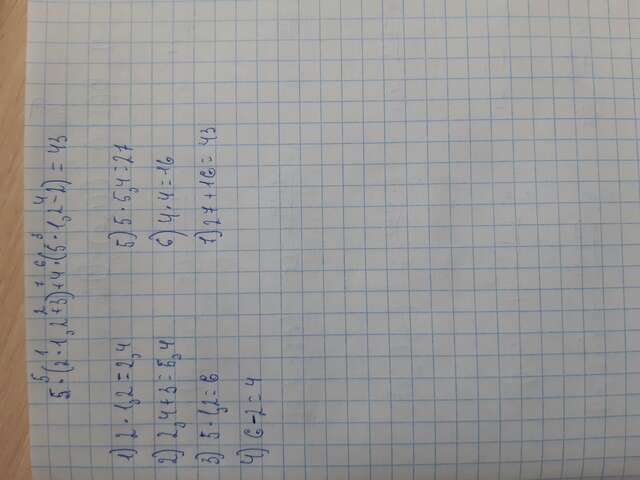 5·(2·1,2+3)+4·(5·1,2-2) = 43
1) 2·1,2=2,4
2) 2,4+3=5,4
3) 5·1,2=6
4) 6-2=4
5) 5·5,4=27
6) 4·4=16
7) 27+16=43